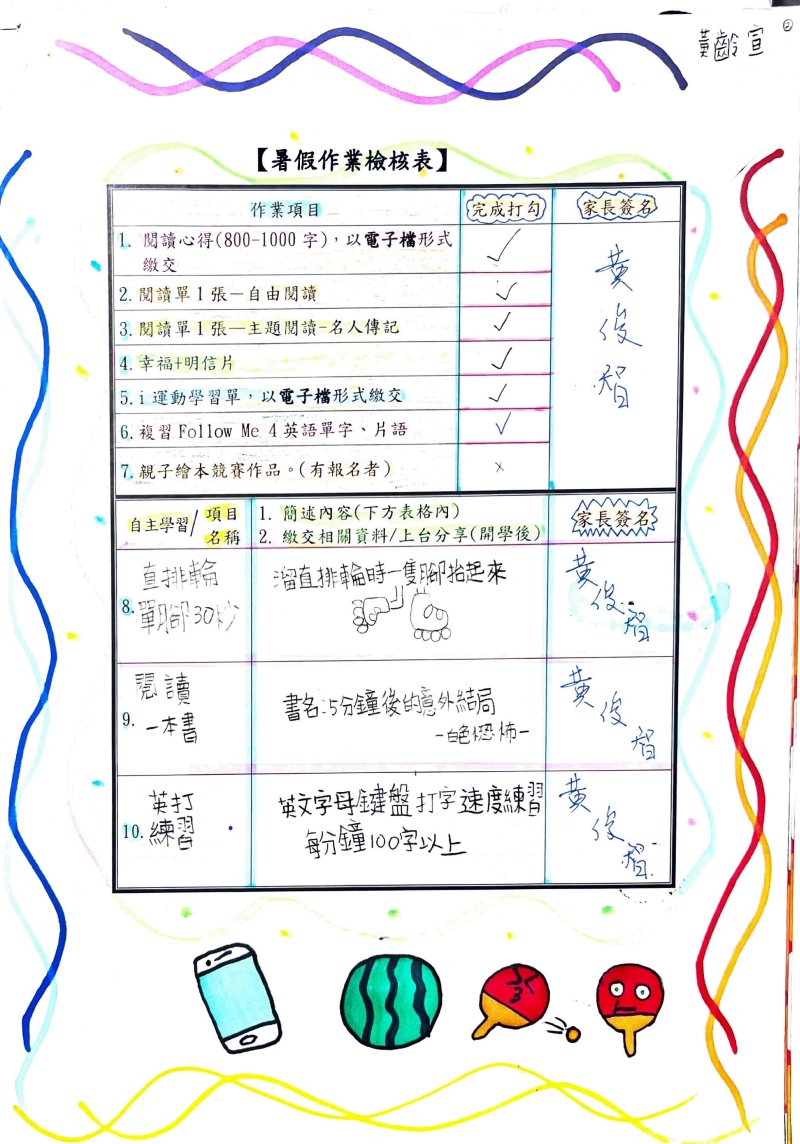 ②
黃齡宣
【暑假作業檢核表】
作業項目 完成打勾 家長簽名
1. 閱讀心得(800-1000 字)，以電子檔形式
繳交 ✓
2. 閱讀單 1 張—自由閱讀 ✓
3. 閱讀單 1 張—主題閱讀-名人傳記 ✓
4. 幸福+明信片 ✓
5. i 運動學習單，以電子檔形式繳交 ✓
6. 複習 Follow Me 4 英語單字、片語 ✓
7. 親子繪本競賽作品。(有報名者) ×
黃俊智
自主學習/項目名稱
1. 簡述內容(下方表格內)
2. 繳交相關資料/上台分享(開學後)
家長簽名
8. 直排輪
單腳30秒
溜直排輪時一隻腳抬起來
黃俊智
9. 閱讀
一本書
書名:5分鐘後的意外結局
-白色恐怖-
黃俊智
10. 英打
練習
英文字母鍵盤打字速度練習
每分鐘100字以上
黃俊智